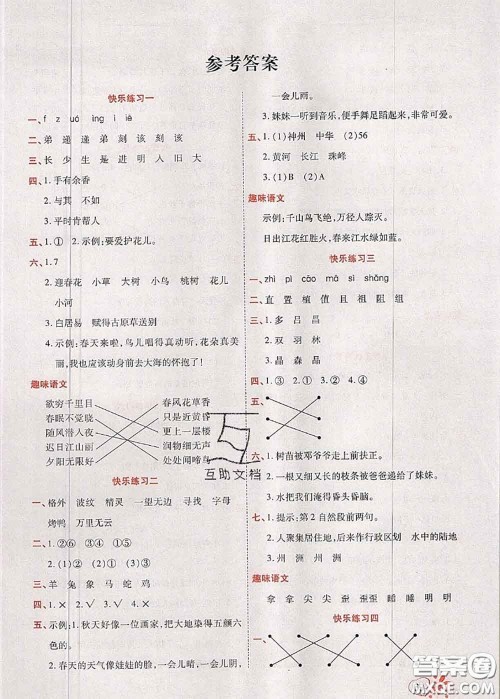 参考答案
快乐练习一
一、f z uó ìng ì iè
二、弟 递 递 弟 刻 该 刻 该
三、长 少 生 是 进 明 人 旧 大
四、1. 手有余香
2. 与其 不如
3. 平时肯帮人
五、1. ① 2. 示例：要爱护花儿。
六、1. 7
2. 迎春花 小草 大树 小鸟 桃树 花儿
小河
4. 白居易 赋得古原草送别
5. 示例：春天来啦，鸟儿唱得真动听，花朵真美
丽，我也应该动身前去大海的怀抱了！
趣味语文
欲穷千里目 春风花草香
春眠不觉晓 只是近黄昏
随风潜入夜 更上一层楼
迟日江山丽 润物细无声
夕阳无限好 处处闻啼鸟
快乐练习二
一、格外 波纹 精灵 一望无边 寻找 字母
烤鸭 万里无云
二、1. ②⑥ 2. ①⑤ 3. ③④
三、羊 兔 象 马 蛇 鸡
四、1. × 2. √ 3. √ 4. √
五、示例：1. 秋天好像一位画家，把果园涂成了五颜六
色的。
2. 春天的天气像娃娃的脸，一会儿晴，一会儿阴，
一会儿雨。
3. 妹妹一听到音乐，便手舞足蹈起来，非常可爱。
五、1. (1)神州 中华 (2)56
2. 黄河 长江 珠峰
3. (1)A (2)B
趣味语文
示例：千山鸟飞绝，万径人踪灭。
日出江花红胜火，春来江水绿如蓝。
快乐练习三
二、直 置 植 值 且 祖 阻 组
三、1. 多 吕 昌
2. 双 羽 林
3. 晶 森 品
四、1. ③ 2. ① 3. ② 4. ④
五、
六、1. 树苗被邓爷爷走上前扶正。
2. 一根又细又长的枝条被他编起来送给了妹妹。
3. 水把我们淹得昏头昏脑。
七、1. 提示：第 2 自然段前两句。
2. 人聚集居住，后来作行政区划 水中的陆地
3. 州 洲 洲
趣味语文
拿 拿 尖 尖 歪 歪歪 睡 睡 明明
快乐练习四
一、
互助文档
答案圈